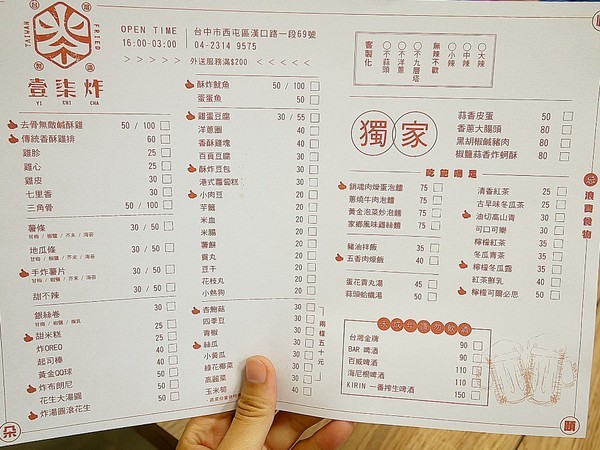 TAIWAN
FRIED
壹柒炸
YI CHI CHA
OPEN TIME
16:00-03:00
> > > > >
台中市西屯區漢口路一段69號
04-2314 9575
外送服務滿$200
< < < < <
去骨無敵鹹酥雞 50 / 100
傳統香酥雞排 60
雞胗 25
雞心 25
雞皮 30
七里香 30
三角骨 50 / 100
薯條 30 / 50
甘梅 / 椒鹽 / 芥末 / 海苔
地瓜條 30 / 50
甘梅 / 椒鹽 / 芥末 / 海苔
手炸薯片 30 / 50
甘梅 / 椒鹽 / 芥末 / 海苔
甜不辣 30 / 50
銀絲卷 30
甜米糕 25
炸OREO 40
起司棒 40
黃金QQ球 50
炸布朗尼 50
花生大湯圓 50
炸湯圓滾花生 50
酥炸魷魚 50 / 100
蛋蛋魚 50
雞蛋豆腐 30 / 55
洋蔥圈 40
香酥雞塊 40
百頁豆腐 30
酥炸豆包 30
港式蘿蔔糕 30
小肉豆 20
芋籤 20
米血 20
米腸 20
薯餅 20
貢丸 20
豆干 20
花枝丸 20
小熱狗 20
杏鮑菇 30
四季豆 30
青椒 30
絲瓜 30
小黃瓜 30
綠花椰菜 30
高麗菜 30
玉米筍 40
兩樣五十元
客製化
○不蒜頭
○不洋蔥
○不九層塔
無辣不歡
○小辣
○中辣
○大辣
獨家
蒜香皮蛋 50
香蔥大腸頭 80
黑胡椒鹹豬肉 80
椒鹽蒜香炸蚵酥 80
吃飽喝足
鎖魂肉燥蛋泡麵 75
蔥燒牛肉泡麵 75
黃金泡菜炒泡麵 75
家鄉風味雞絲麵 75
豬油拌飯 35
五香肉燥飯 40
蛋花貢丸湯 45
蒜頭蛤蠣湯 50
清香紅茶 25
古早味冬瓜茶 25
油切高山青 30
可口可樂 30
檸檬紅茶 35
冬瓜青茶 35
檸檬冬瓜露 35
紅茶鮮乳 40
檸檬可爾必思 50
未成年請勿飲酒
台灣金牌 60
BAR 啤酒 90
百威啤酒 90
海尼根啤酒 110
KIRIN 一番搾生啤酒 150
浪費食物
朵
頤